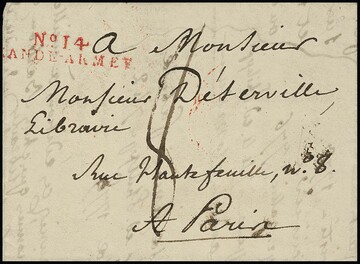 No. 14
ANDE-ARMÉE
A Monsieur
Monsieur Déterville,
Libraire
Rue Hautefeuille, n.° 8.
A Paris